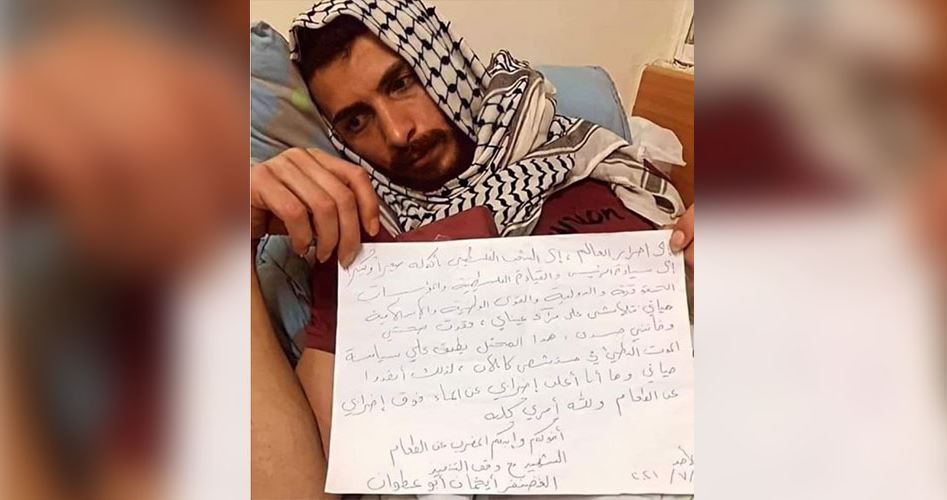 إلى أحرار العالم، إلى الشعب الفلسطيني بأكمله صغيراً وكبيراً
إلى سيادة الرئيس والقيادة الفلسطينية والمؤسسات
الحقوقية والدولية والقوى الوطنية والإسلامية
حياتي تتلاشى على مرأى عيناي، وفقدت صحتي
وخانني جسدي، هذا المحتل يطبق علي سياسة
الموت البطيء في مستشفى كابلان، لذلك أنقذوا
حياتي وها أنا أعلن إضرابي عن الماء فوق إضرابي
عن الطعام ولله أمري كله
أخوكم وابنكم المضرب عن الطعام
الشهيد مع وقف التنفيذ
الغضنفر أيخمان أبو عطوان
الأحد
٢٠٢١ /٧/